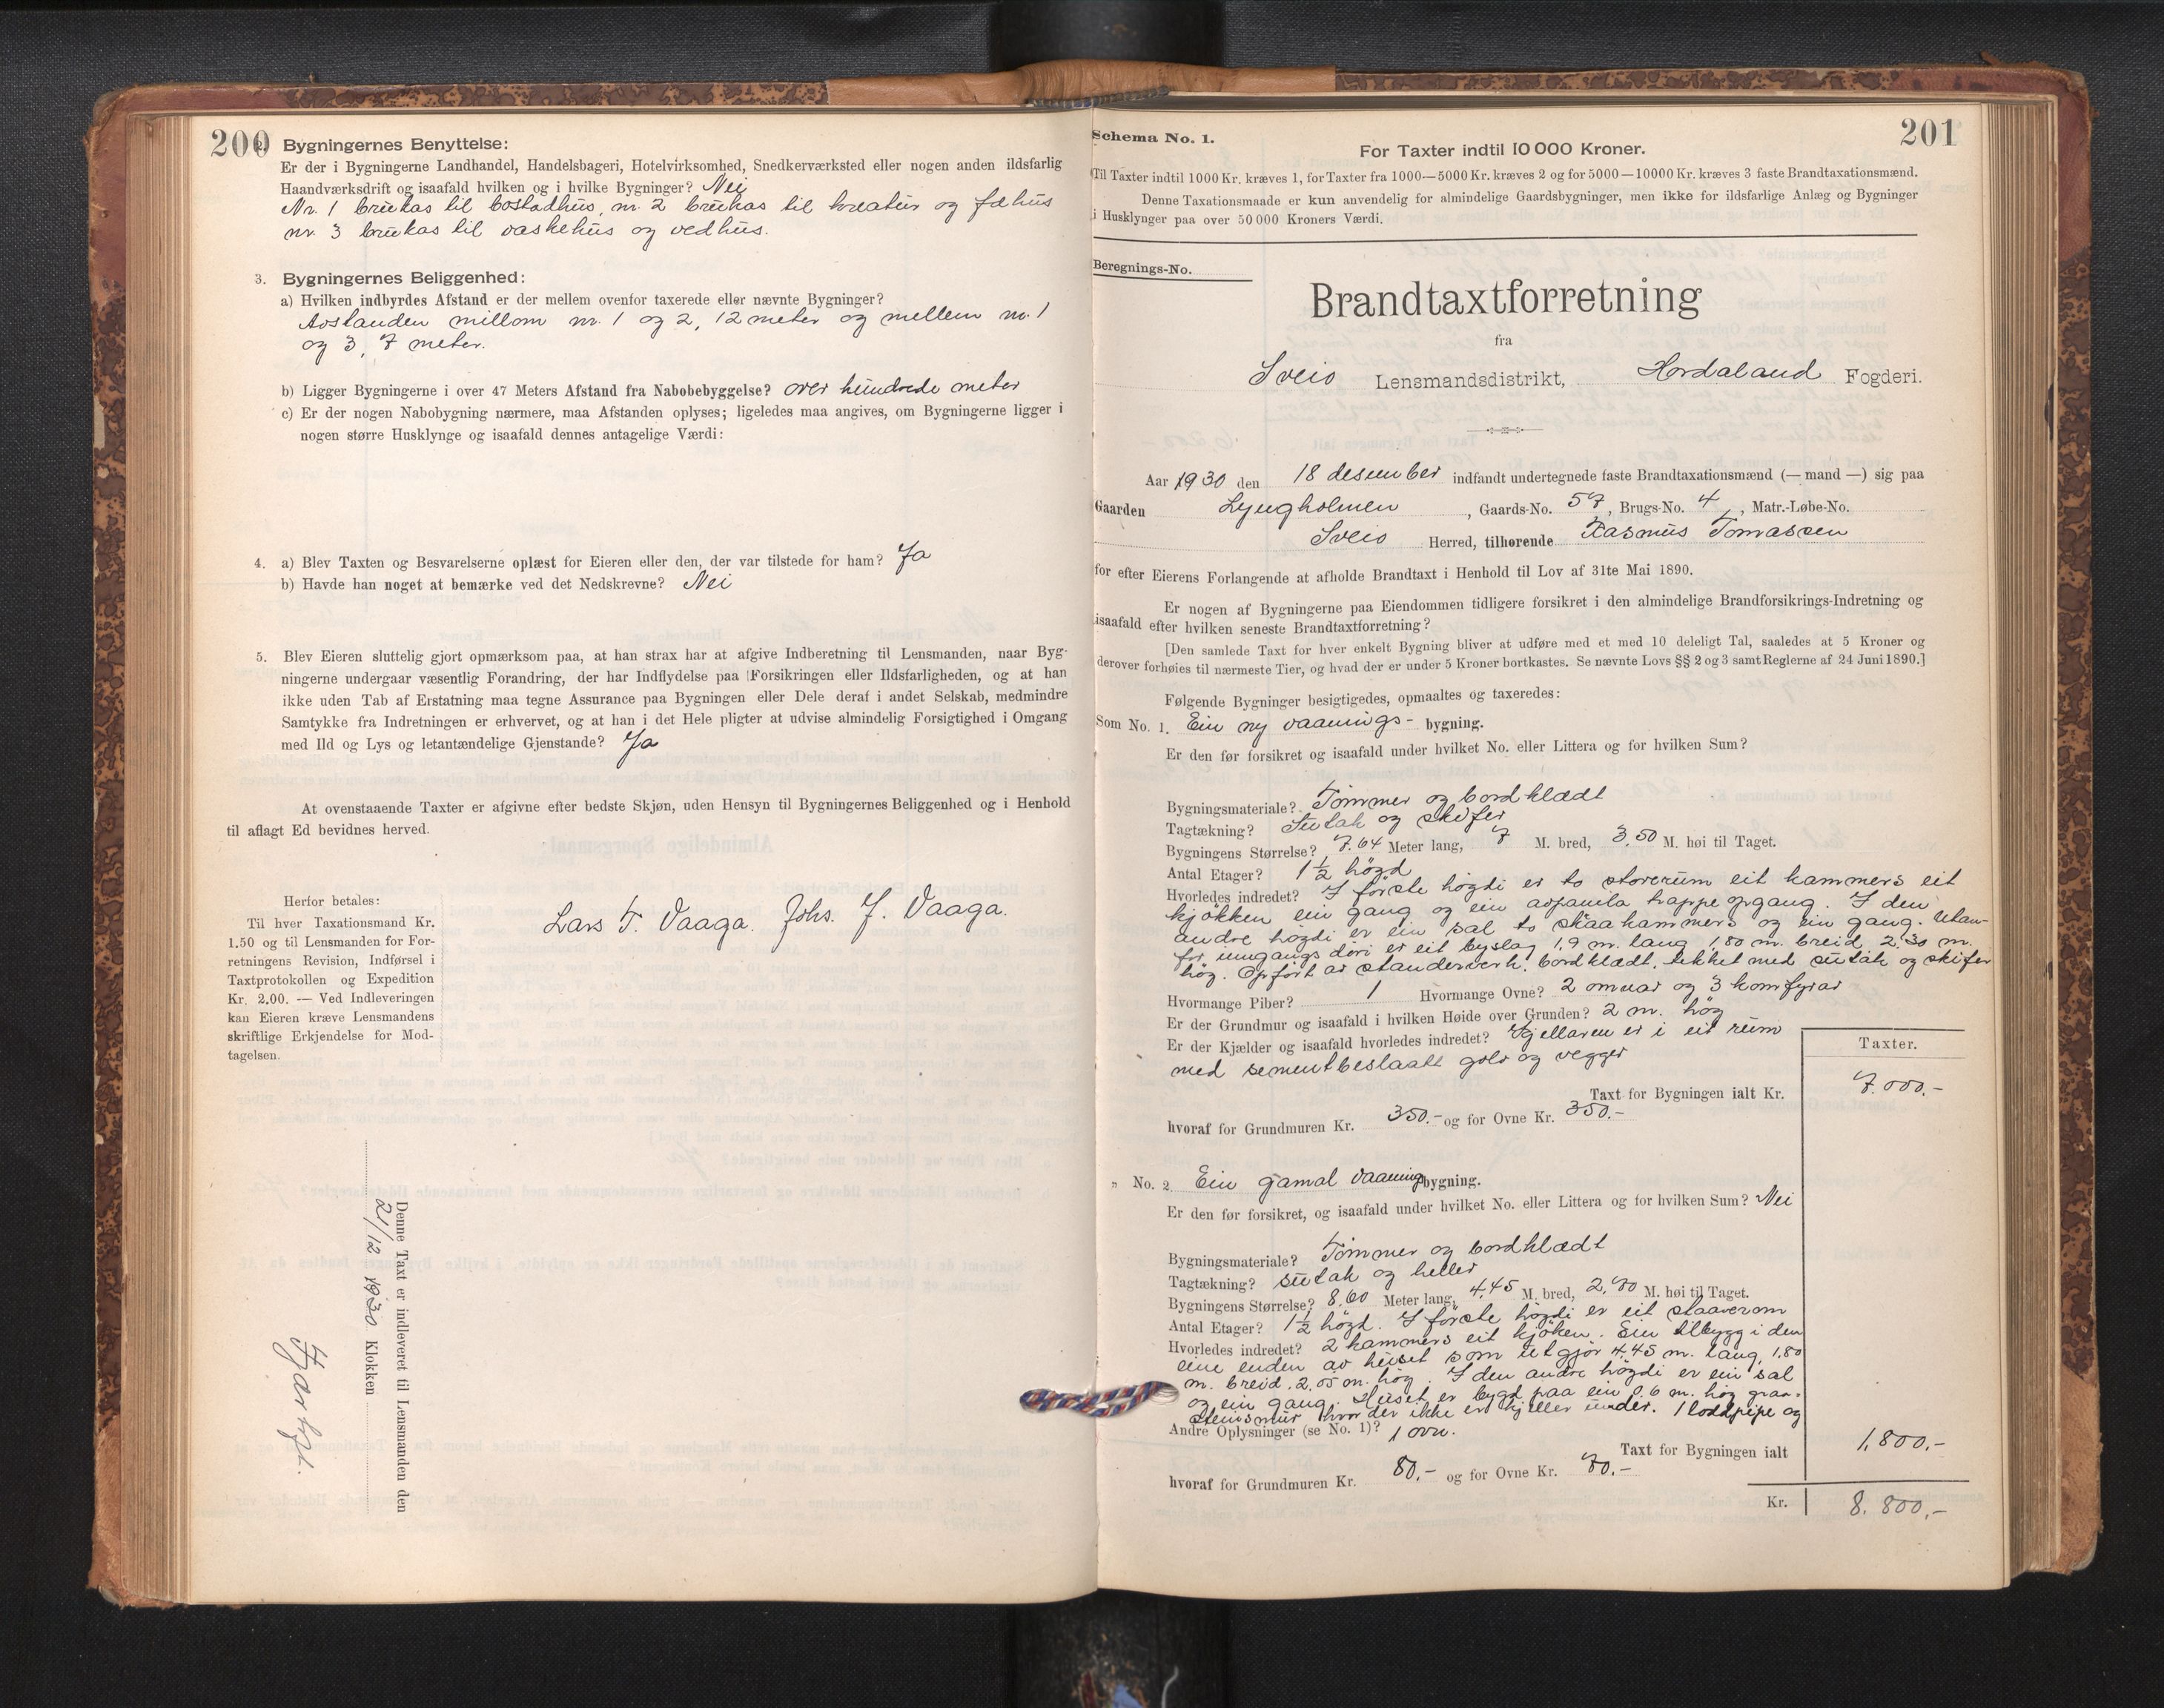 200
2. Bygningernes Benyttelse:
Er der i Bygningerne Landhandel, Handelsbageri, Hotelvirksomhed, Snedkerværksted eller nogen anden ildsfarlig
Haandværksdrift og isaafald hvilken og i hvilke Bygninger? Nei
Nr. 1 brukas til bostadhus, nr. 2 brukas til kreatur og fæhus
nr. 3 brukas til vaskehus og vedhus.
3. Bygningernes Beliggenhed:
a) Hvilken indbyrdes Afstand er der mellem ovenfor taxerede eller nævnte Bygninger?
Avstanden millom nr. 1 og 2, 12 meter og mellem nr. 1
og 3, 7 meter.
b) Ligger Bygningerne i over 47 Meters Afstand fra Nabobebyggelse? over hundrede meter
c) Er der nogen Nabobygning nærmere, maa Afstanden oplyses; ligeledes maa angives, om Bygningerne ligger i
nogen større Husklynge og isaafald dennes antagelige Værdi:
4. a) Blev Taxten og Besvarelserne oplæst for Eieren eller den, der var tilstede for ham? Ja
b) Havde han noget at bemærke ved det Nedskrevne? Nei
5. Blev Eieren sluttelig gjort opmærksom paa, at han strax har at afgive Indberetning til Lensmanden, naar Byg-
ningerne undergaar væsentlig Forandring, der har Indflydelse paa Forsikringen eller Ildsfarligheden, og at han
ikke uden Tab af Erstatning maa tegne Assurance paa Bygningen eller Dele deraf i andet Selskab, medmindre
Samtykke fra Indretningen er erhvervet, og at han i det Hele pligter at udvise almindelig Forsigtighed i Omgang
med Ild og Lys og letantændelige Gjenstande? Ja
At ovenstaaende Taxter er afgivne efter bedste Skjøn, uden Hensyn til Bygningernes Beliggenhed og i Henhold
til aflagt Ed bevidnes herved.
Herfor betales:
Til hver Taxationsmand Kr.
1.50 og til Lensmanden for For-
retningens Revision, Indførsel i
Taxtprotokollen og Expedition
Kr. 2.00. — Ved Indleveringen
kan Eieren kræve Lensmandens
skriftlige Erkjendelse for Mod-
tagelsen.
Lars T. Vaaga. Johs. J. Vaaga.
Denne Taxt er indleveret til Lensmanden den
21/12 1930 Klokken
201
Schema No. 1.
For Taxter indtil 10 000 Kroner.
Til Taxter indtil 1000 Kr. kræves 1, for Taxter fra 1000—5000 Kr. kræves 2 og for 5000—10000 Kr. kræves 3 faste Brandtaxationsmænd.
Denne Taxationsmaade er kun anvendelig for almindelige Gaardsbygninger, men ikke for ildsfarlige Anlæg og Bygninger
i Husklynger paa over 50 000 Kroners Værdi.
Beregnings-No.
Brandtaxtforretning
fra
Sveio Lensmandsdistrikt, Hordaland Fogderi.
Aar 1930 den 18 desember indfandt undertegnede faste Brandtaxationsmænd (— mand —) sig paa
Gaarden Lyngholmen, Gaards-No. 57, Brugs-No. 4, Matr.-Løbe-No.
Sveio Herred, tilhørende Rasmus Tomassen
for efter Eierens Forlangende at afholde Brandtaxt i Henhold til Lov af 31te Mai 1890.
Er nogen af Bygningerne paa Eiendommen tidligere forsikret i den almindelige Brandforsikrings-Indretning og
isaafald efter hvilken seneste Brandtaxtforretning?
[Den samlede Taxt for hver enkelt Bygning bliver at udføre med et med 10 deleligt Tal, saaledes at 5 Kroner og
derover forhøies til nærmeste Tier, og hvad der er under 5 Kroner bortkastes. Se nævnte Lovs §§ 2 og 3 samt Reglerne af 24 Juni 1890.]
Følgende Bygninger besigtigedes, opmaaltes og taxeredes:
Som No. 1. Ein ny vaanings- bygning.
Er den før forsikret og isaafald under hvilket No. eller Littera og for hvilken Sum?
Bygningsmateriale? Tømmer og bordklædt
Tagtækning? Sutak og skifer
Bygningens Størrelse? 7.64 Meter lang, 7 M. bred, 3,50 M. høi til Taget.
Antal Etager? 1½ högd
Hvorledes indredet? I förste högdi er to storerum eit kammers eit
kjökken ein gang og ein avpanila trappe opgang. I den
andre högdi er ein sal to skaakammers og ein gang. Utan-
for inngangs döri er eit byslag 1,9 m. lang 1,80 m. breid 2.30 m.
hög. Opfört av standerverk, bordklædt, tekket med sutak og skifer
Hvormange Piber? 1 Hvormange Ovne? 2 omnar og 3 komfyrar
Er der Grundmur og isaafald i hvilken Høide over Grunden? 2 m. hög
Er der Kjælder og isaafald hvorledes indredet? Kjellaren er i eit rum
med sementbeslaatt golv og vegger
Taxter.
Taxt for Bygningen ialt Kr. 7.000.-
hvoraf for Grundmuren Kr. 350.- og for Ovne Kr. 350.-
„ No. 2 Ein gamal vaaningsbygning.
Er den før forsikret, og isaafald under hvilket No. eller Littera og for hvilken Sum? Nei
Bygningsmateriale? Tömmer og bordklædt
Tagtækning? sutak og heller
Bygningens Størrelse? 8,60 Meter lang, 4,45 M. bred, 2,70 M. høi til Taget.
Antal Etager? 1½ högd. I förste högdi er eit staaverom
Hvorledes indredet? 2 kammers eit kjöken. Ein tilbygg i den
eine enden av huset som utgjör 4,45 m. lang, 1.80
m. breid, 2,05 m. hög. I den andre högdi er ein sal
og ein gang. Huset er bygd paa ein 0.6 m. hög graa-
steinsmur hvor der ikke er kjeller under. 1 loddpipe og
Andre Oplysninger (se No. 1)? 1 ovn.
Taxt for Bygningen ialt 1,800,-
hvoraf for Grundmuren Kr. 80,- og for Ovne Kr. 70.-
Kr. 8.800,-